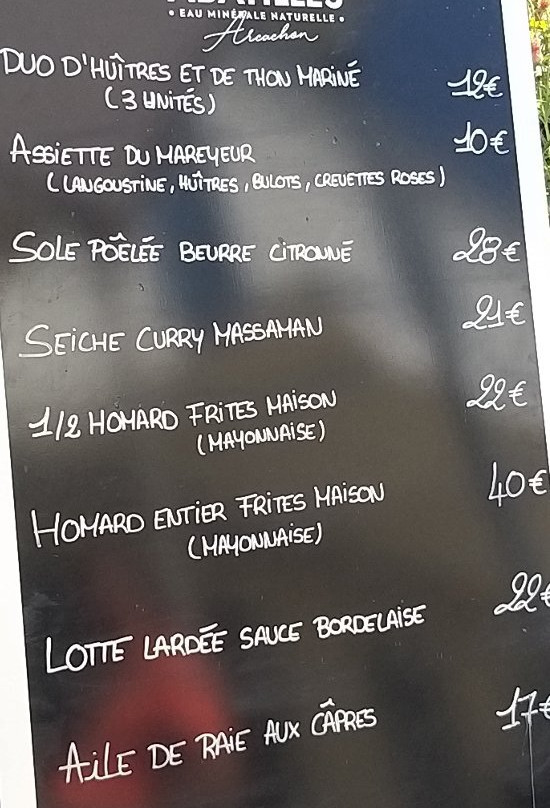 • EAU MINÉRALE NATURELLE •
Arcachon
DUO D'HUÎTRES ET DE THON MARINÉ 12€
(3 UNITÉS)
ASSIETTE DU MAREYEUR 10€
(LANGOUSTINE, HUÎTRES, BULOTS, CREVETTES ROSES)
SOLE POÊLÉE BEURRE CITRONNÉ 28€
SEICHE CURRY MASSAMAN 21€
1/2 HOMARD FRITES MAISON 22€
(MAYONNAISE)
HOMARD ENTIER FRITES MAISON 40€
(MAYONNAISE)
LOTTE LARDÉE SAUCE BORDELAISE 22€
AILE DE RAIE AUX CÂPRES 17€